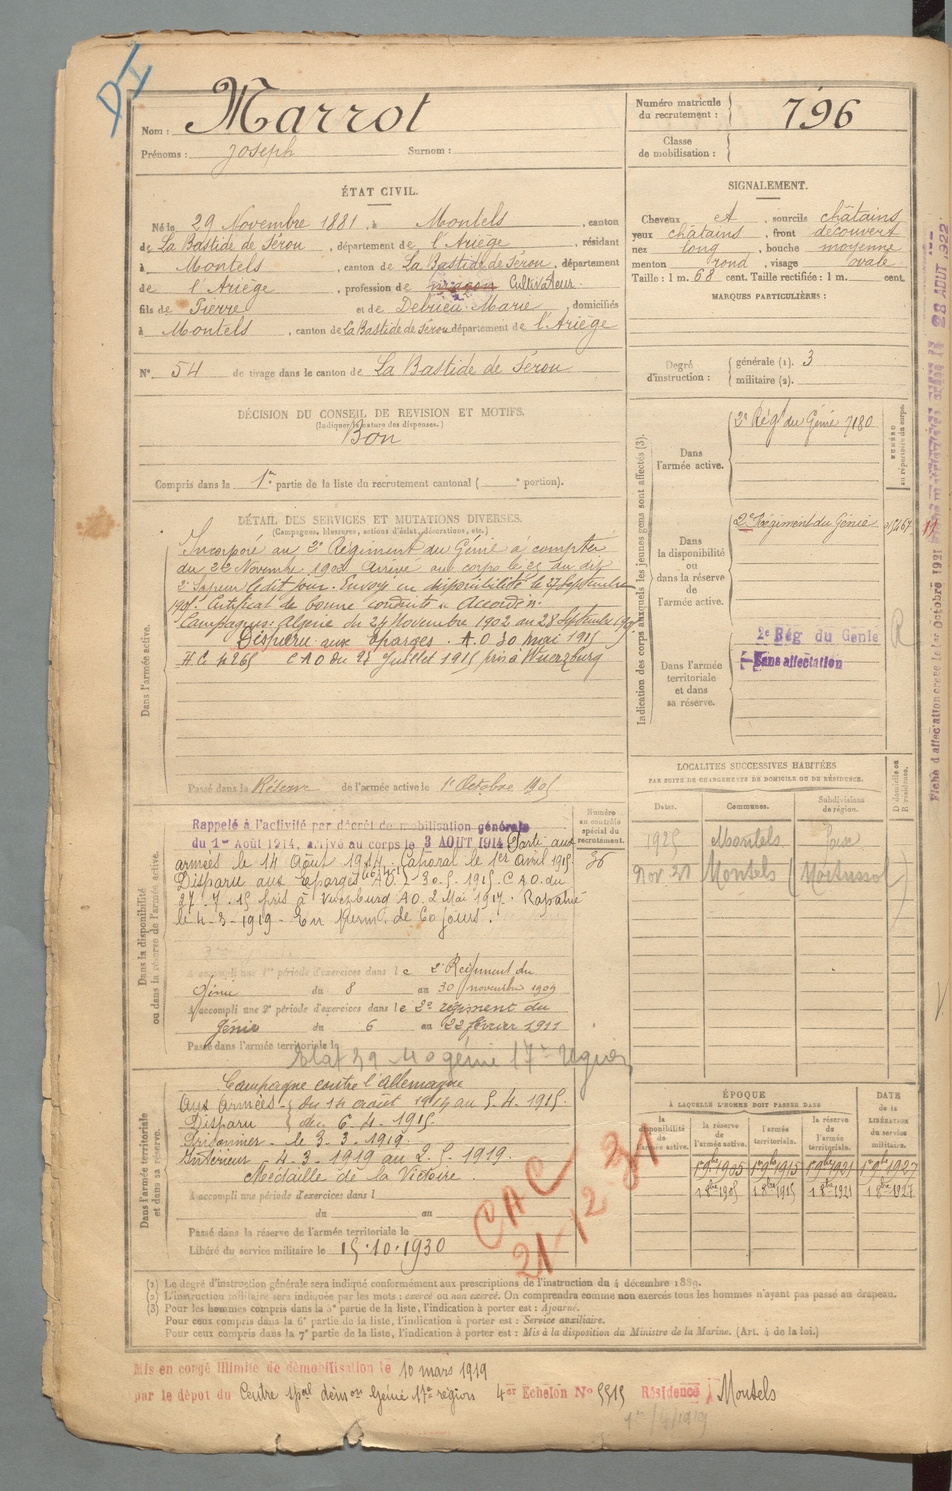 Nom : Marrot
Prénoms : Joseph Surnom :
Numéro matricule du recrutement : 796
Classe de mobilisation :
ÉTAT CIVIL.
Né le 29 Novembre 1881, à Montels, canton
de La Bastide de Sérou, département de l'Ariège, résidant
à Montels, canton de La Bastide de Sérou, département
de l'Ariège, profession de Cultivateur
fils de Pierre et de Debrieu Marie, domiciliés
à Montels, canton de La Bastide de Sérou département de l'Ariège
N° 54 de tirage dans le canton de La Bastide de Sérou
SIGNALEMENT.
Cheveux et, sourcils châtains
yeux châtains, front découvert
nez long, bouche moyenne
menton rond, visage ovale
Taille : 1 m. 68 cent. Taille rectifiée : 1 m. cent.
MARQUES PARTICULIÈRES :
Degré d'instruction : générale (1). 3
militaire (2).
DÉCISION DU CONSEIL DE REVISION ET MOTIFS.
(Indiquer la nature des dispenses.)
Bon
Compris dans la 1re partie de la liste du recrutement cantonal ( e portion).
DÉTAIL DES SERVICES ET MUTATIONS DIVERSES.
(Campagnes, blessures, actions d'éclat, décorations, etc.)
Dans l'armée active.
Incorporé au 2e Régiment du Génie à compter
du Novembre 1902. Arrivé au corps le du dit
2e Sapeur ledit jour. Envoyé en disponibilité le 27 Septembre
Certificat de bonne conduite Accordé.
Campagnes: Algérie du 24 Novembre 1902 au 28 Septembre
Disparu aux Eparges. A.O. 30 mai 1915
H C 4265 C A O du 28 Juillet 1915 pris à Wuerzburg
Passé dans la Réserve de l'armée active le 1er Octobre 1905
Indication des corps auxquels les jeunes gens sont affectés (3).
NUMÉRO au répertoire du corps.
Dans l'armée active.
2e Rég du Génie 7180
Dans la disponibilité ou dans la réserve de l'armée active.
2e Régiment du Génie
Dans l'armée territoriale et dans sa réserve.
2e Rég du Génie
Sans affectation
R
LOCALITÉS SUCCESSIVES HABITÉES
PAR SUITE DE CHANGEMENTS DE DOMICILE OU DE RÉSIDENCE.
Dates. Communes. Subdivisions de région. D domicile ou R résidence.
1925 Montels Foix
Nov 30 Montels
Dans la disponibilité ou dans la réserve de l'armée active.
Numéro au contrôle spécial du recrutement.
36
Rappelé à l'activité par décret de mobilisation générale
du 1er Août 1914, arrivé au corps le 3 AOUT 1914 Parti aux
armées le 14 Août 1914. Caporal le 1er Avril 1915
Disparu aux Eparges A.O. 30.5.1915. C.A.O. du
27.7.15 pris à Wurzburg A.O. 2 Mai 1917. Rapatrié
le 4-3-1919. En perm. de 60 jours.
A accompli une 1re période d'exercices dans le 2e Régiment du
Génie du 8 au 30 novembre 1909
A accompli une 2e période d'exercices dans le 2e régiment du
Génie du 6 au 22 février 1911
Passé dans l'armée territoriale le
Dans l'armée territoriale et dans sa réserve.
Campagne contre l'Allemagne
Aux Armées du 14 août 1914 au 5.4.1915.
Disparu du 6.4.1915.
Prisonnier le 3.3.1919.
Intérieur 4.3.1919 au 2.5.1919.
Médaille de la Victoire.
A accompli une période d'exercices dans l
du au
Passé dans la réserve de l'armée territoriale le
Libéré du service militaire le 15.10.1930
CAC
21-12-31
ÉPOQUE
À LAQUELLE L'HOMME DOIT PASSER DANS
DATE de la LIBÉRATION du service militaire.
la disponibilité de l'armée active. la réserve de l'armée active. l'armée territoriale. la réserve de l'armée territoriale.
1er 9bre 1905 1er 9bre 1915 1er 9bre 1921 1er 9bre 1927
1 8bre 1905 1 8bre 1915 1 8bre 1921 1 8bre 1927
(1) Le degré d'instruction générale sera indiqué conformément aux prescriptions de l'instruction du 4 décembre 1889.
(2) L'instruction militaire sera indiquée par les mots : exercé ou non exercé. On comprendra comme non exercés tous les hommes n'ayant pas passé au drapeau.
(3) Pour les hommes compris dans la 5e partie de la liste, l'indication à porter est : Ajourné.
Pour ceux compris dans la 6e partie de la liste, l'indication à porter est : Service auxiliaire.
Pour ceux compris dans la 7e partie de la liste, l'indication à porter est : Mis à la disposition du Ministre de la Marine. (Art. 4 de la loi.)
Mis en congé illimité de démobilisation le 10 mars 1919
par le dépôt du Centre spal démon Génie 17e région 4er Echelon N° 5515 Résidence Montels